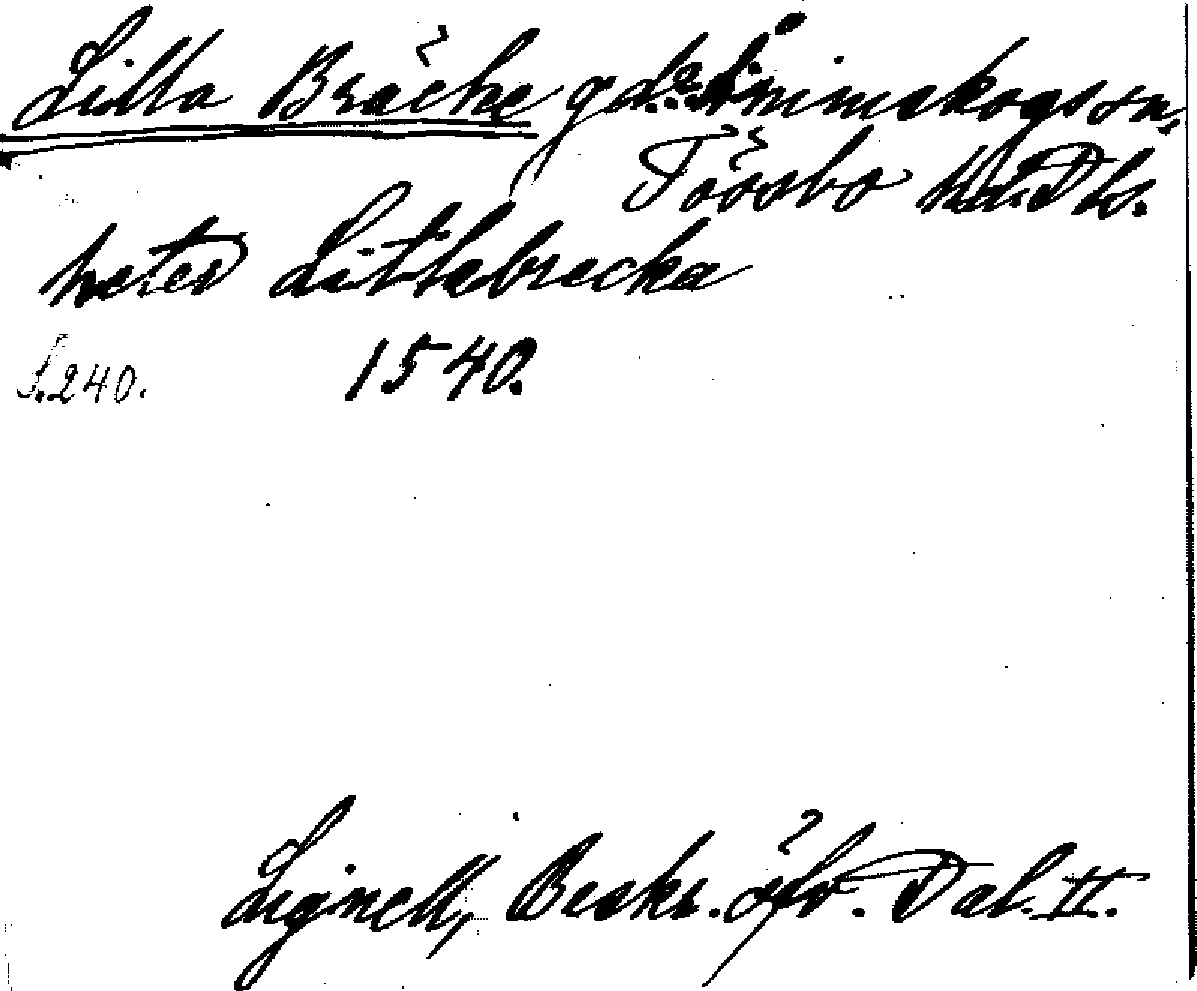 Lilla Bräcke gd. Ånimskogs sn,
Tössbo hd. Dls.
heter Litlabrecka
S. 240. 1540.
Lignell, Beskr. öfv. Dal. II.